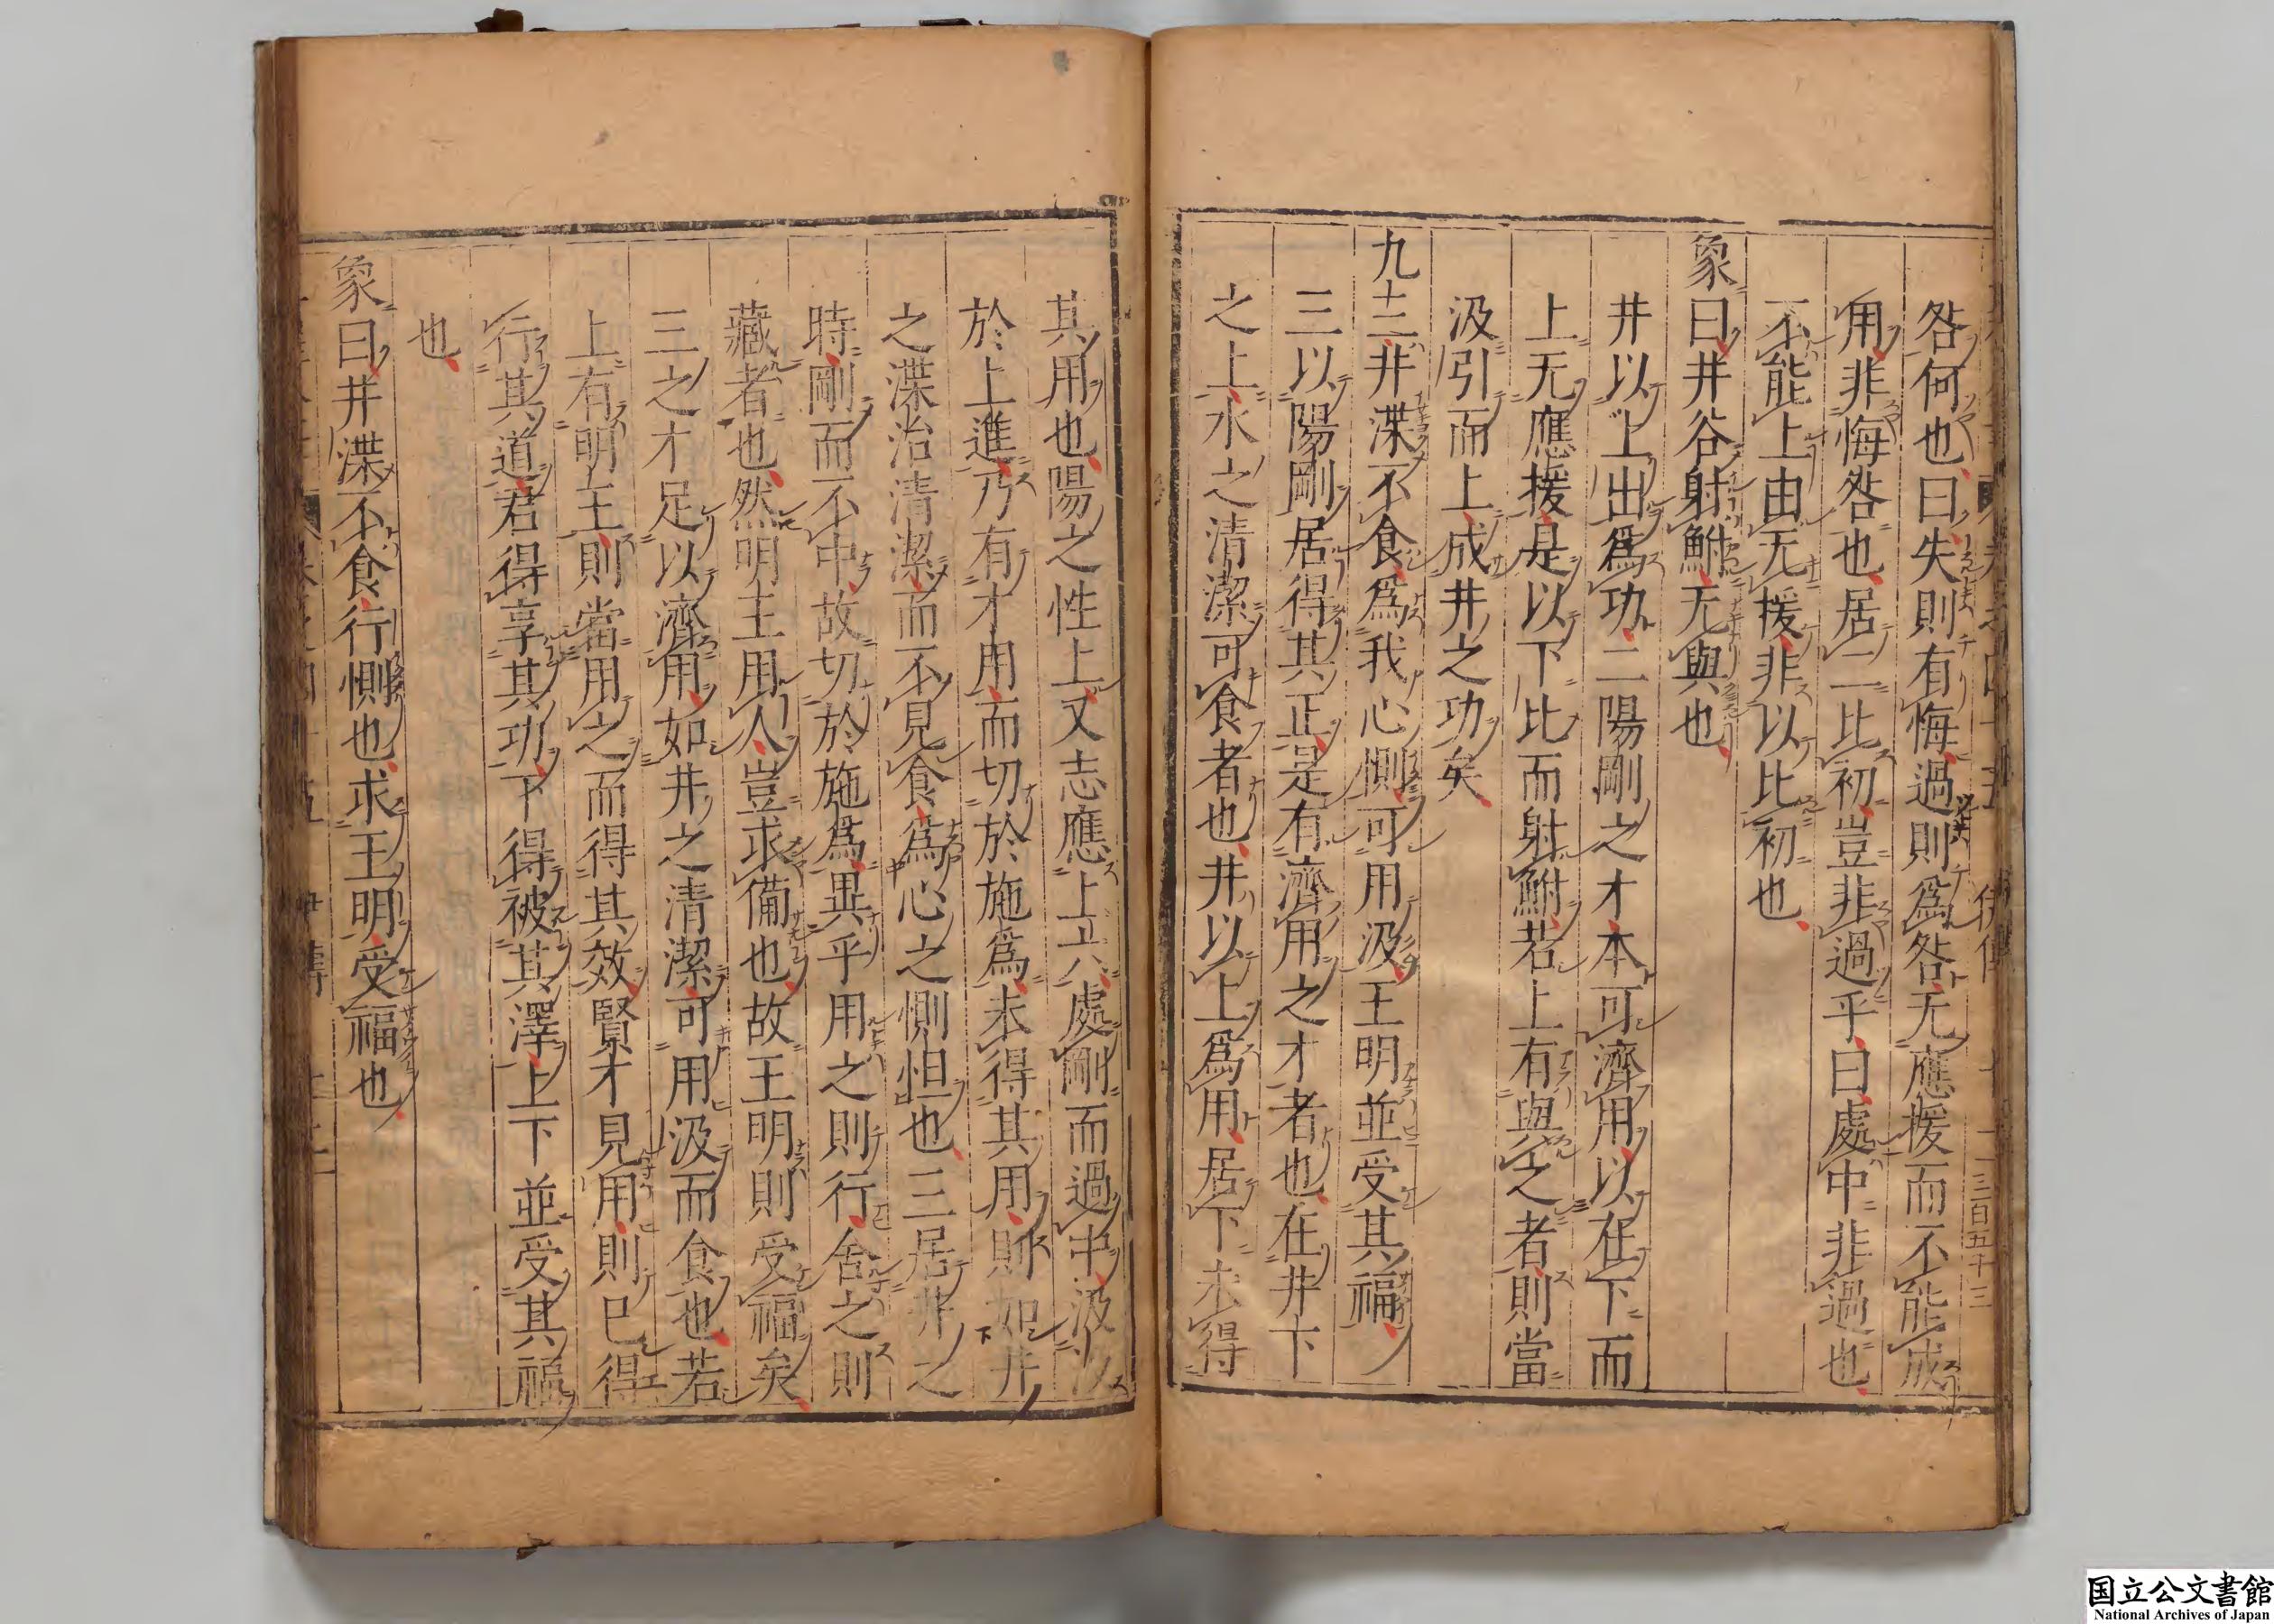 咎何也曰失則有悔過則爲咎无應援而不能成
用非悔咎也居二比初豈非過乎曰處中非過也
不能上由无援非以比初也
象曰井谷射鮒无與也
井以上出爲功二陽剛之才本可濟用以在下而
上无應援是以下比而射鮒若上有與之者則當
汲引而上成井之功矣
九三井渫不食爲我心惻可用汲王明並受其福
三以陽剛居得其正是有濟用之才者也在井下
之上水之清潔可食者也井以上爲用居下未得
其用也陽之性上又志應上六處剛而過中汲汲
於上進乃有才用而切於施爲未得其用則如井
之渫治清潔而不見食爲心之惻怛也三居井之
時剛而不中故切於施爲異乎用之則行舍之則
藏者也然明王用人豈求備也故王明則受福矣
三之才足以濟用如井之清潔可用汲而食也若
上有明王則當用之而得其效賢才見用則已得
行其道君得享其功下得被其澤上下並受其福
也
象曰井渫不食行惻也求王明受福也
国立公文書館
National Archives of Japan